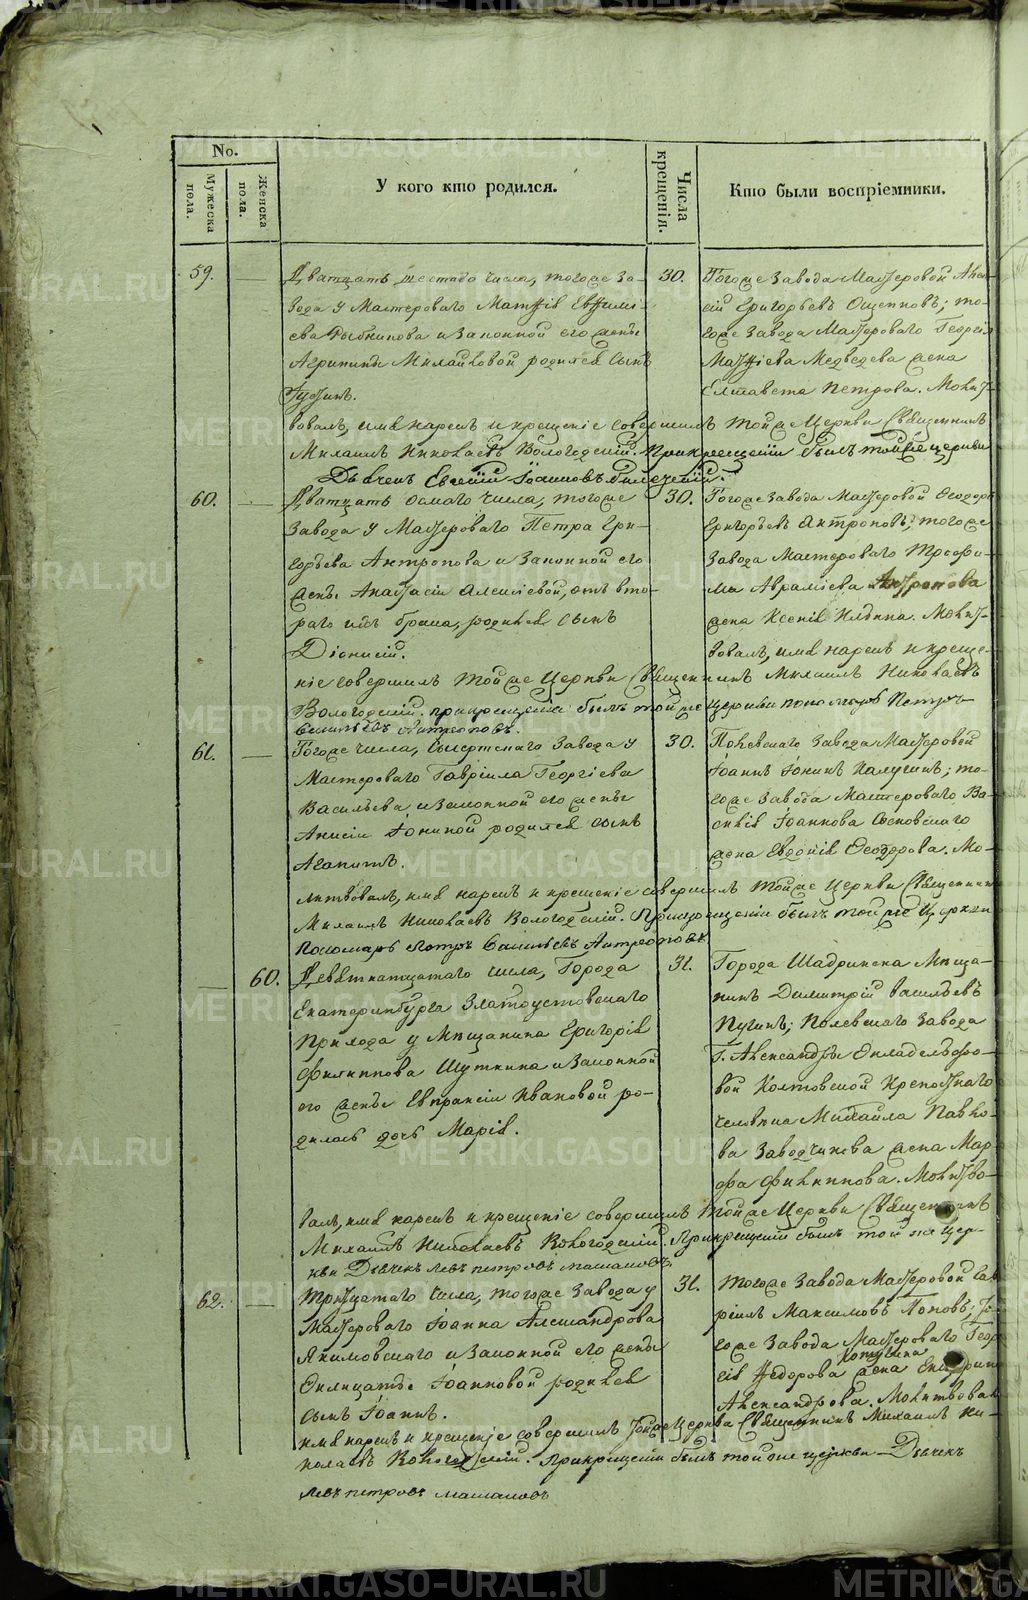 No.
Мужеска пола.
Женска пола.
У кого кто родился.
Числа крещенія.
Кто были воспріемники.
59. — Дватцать шестаго числа, тогоже за-
вода у Мастероваго Матѳія Евѳимі-
ева Рыбникова и законной его жены
Агрипины Михайловой родился сынъ
Іустинъ.
30. Тогоже завода Мастеровой Алек-
сій Григорьевъ Ощепковъ; то-
гоже завода Мастероваго Георгія
Матѳіева Медведева жена
Елисавета Петрова. Молит-
вовалъ, имя нарекъ и крещеніе совершилъ тойже Церкви Священникъ
Михаилъ Николаевъ Вологодскій. Прикрещеніи былъ тойже церкви
Дьячекъ Евгеній Іоанновъ
60. — Дватцать осмаго числа, тогоже
завода у Мастероваго Петра Гри-
горьева Антропова и законной его
жены Анастасіи Алексіевой, отъ вто-
раго ихъ брака, родился сынъ
Діонисій.
30. Тогоже завода Мастеровой Ѳеодоръ
Григорьевъ Антроповъ; тогоже
завода Мастероваго Трофи-
ма Авраміева Антропова
жена Ксенія Ильина. Молит-
вовалъ, имя нарекъ и креще-
ніе совершилъ тойже Церкви Священникъ Михаилъ Николаевъ
Вологодскій. прикрещеніи былъ тойже церкви пономарь Петръ
Васильевъ Антроповъ.
61. — Тогоже числа, Сысертскаго завода у
Мастероваго Гавріила Георгіева
Васильева и законной его жены
Анисіи Іониной родился сынъ
Агапитъ.
30. Полевскаго завода Мастеровой
Іоаннъ Іонинъ Калугинъ; то-
гоже завода Мастероваго Ва-
силія Іоаннова Сосновскаго
жена Евдокія Ѳеодорова. Мо-
литвовалъ, имя нарекъ и крещеніе совершилъ тойже Церкви Священникъ
Михаилъ Николаевъ Вологодскій. Прикрещеніи былъ тойже Церкви
пономарь Петръ Васильевъ Антроповъ
— 60. Девятнатцатаго числа, Города
Екатеринбурга Златоустовскаго
Прихода у Мещанина Григорія
Филиппова Шуткина и законной
его жены Евпраксіи Ивановой ро-
дилась дочь Марія.
31. Города Шадринска Меща-
нинъ Димитрій Васильевъ
Пугинъ; Полевскаго завода
Г. Александры Филадельфо-
вой Колтовской Крепостнаго
человека Михаила Павло-
ва Заводчикова жена Мар-
фа Филиппова. Молитво-
валъ, имя нарекъ и крещеніе совершилъ тойже Церкви Священникъ
Михаилъ Николаевъ Вологодскій. Прикрещеніи былъ тойже цер-
кви Дьячекъ Левъ Петровъ Машановъ
62. — Тритцатаго числа, тогоже завода у
Мастероваго Іоанна Александрова
Якимовскаго и законной его жены
Филицаты Іоанновой родился
сынъ Іоаннъ.
31. Тогоже завода Мастеровой Гав-
ріилъ Максимовъ Поповъ; то-
гоже завода Мастероваго Геор-
гія Ѳедорова Котугина жена Екатерина
Александрова. Молитвовалъ
имя нарекъ и крещеніе совершилъ тойже Церкви Священникъ Михаилъ Ни-
колаевъ Вологодскій. Прикрещеніи былъ тойже церкви Дьячекъ
Левъ Петровъ Машановъ
METRIKI.GASO-URAL.RU